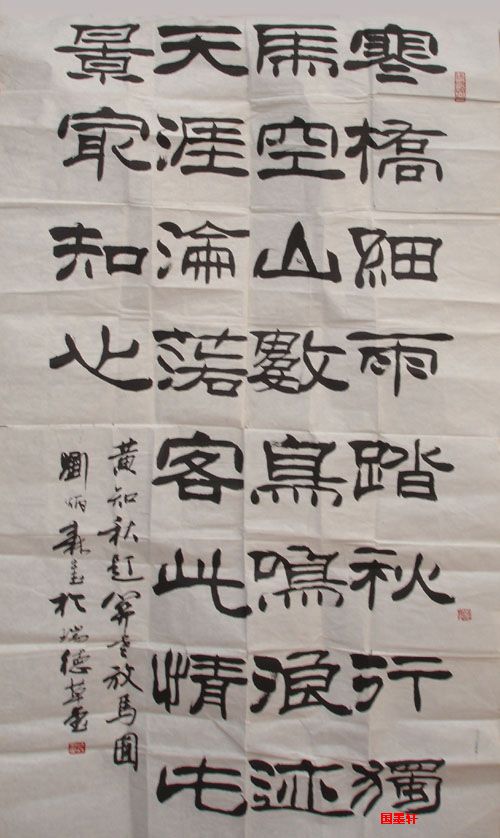 寒橋細雨踏秋行獨
馬空山數鳥鳴浪迹
天涯淪落客此情此
景冣知心
黄知秋題老放馬圖
劉炳森書於瑞德草堂
国墨轩